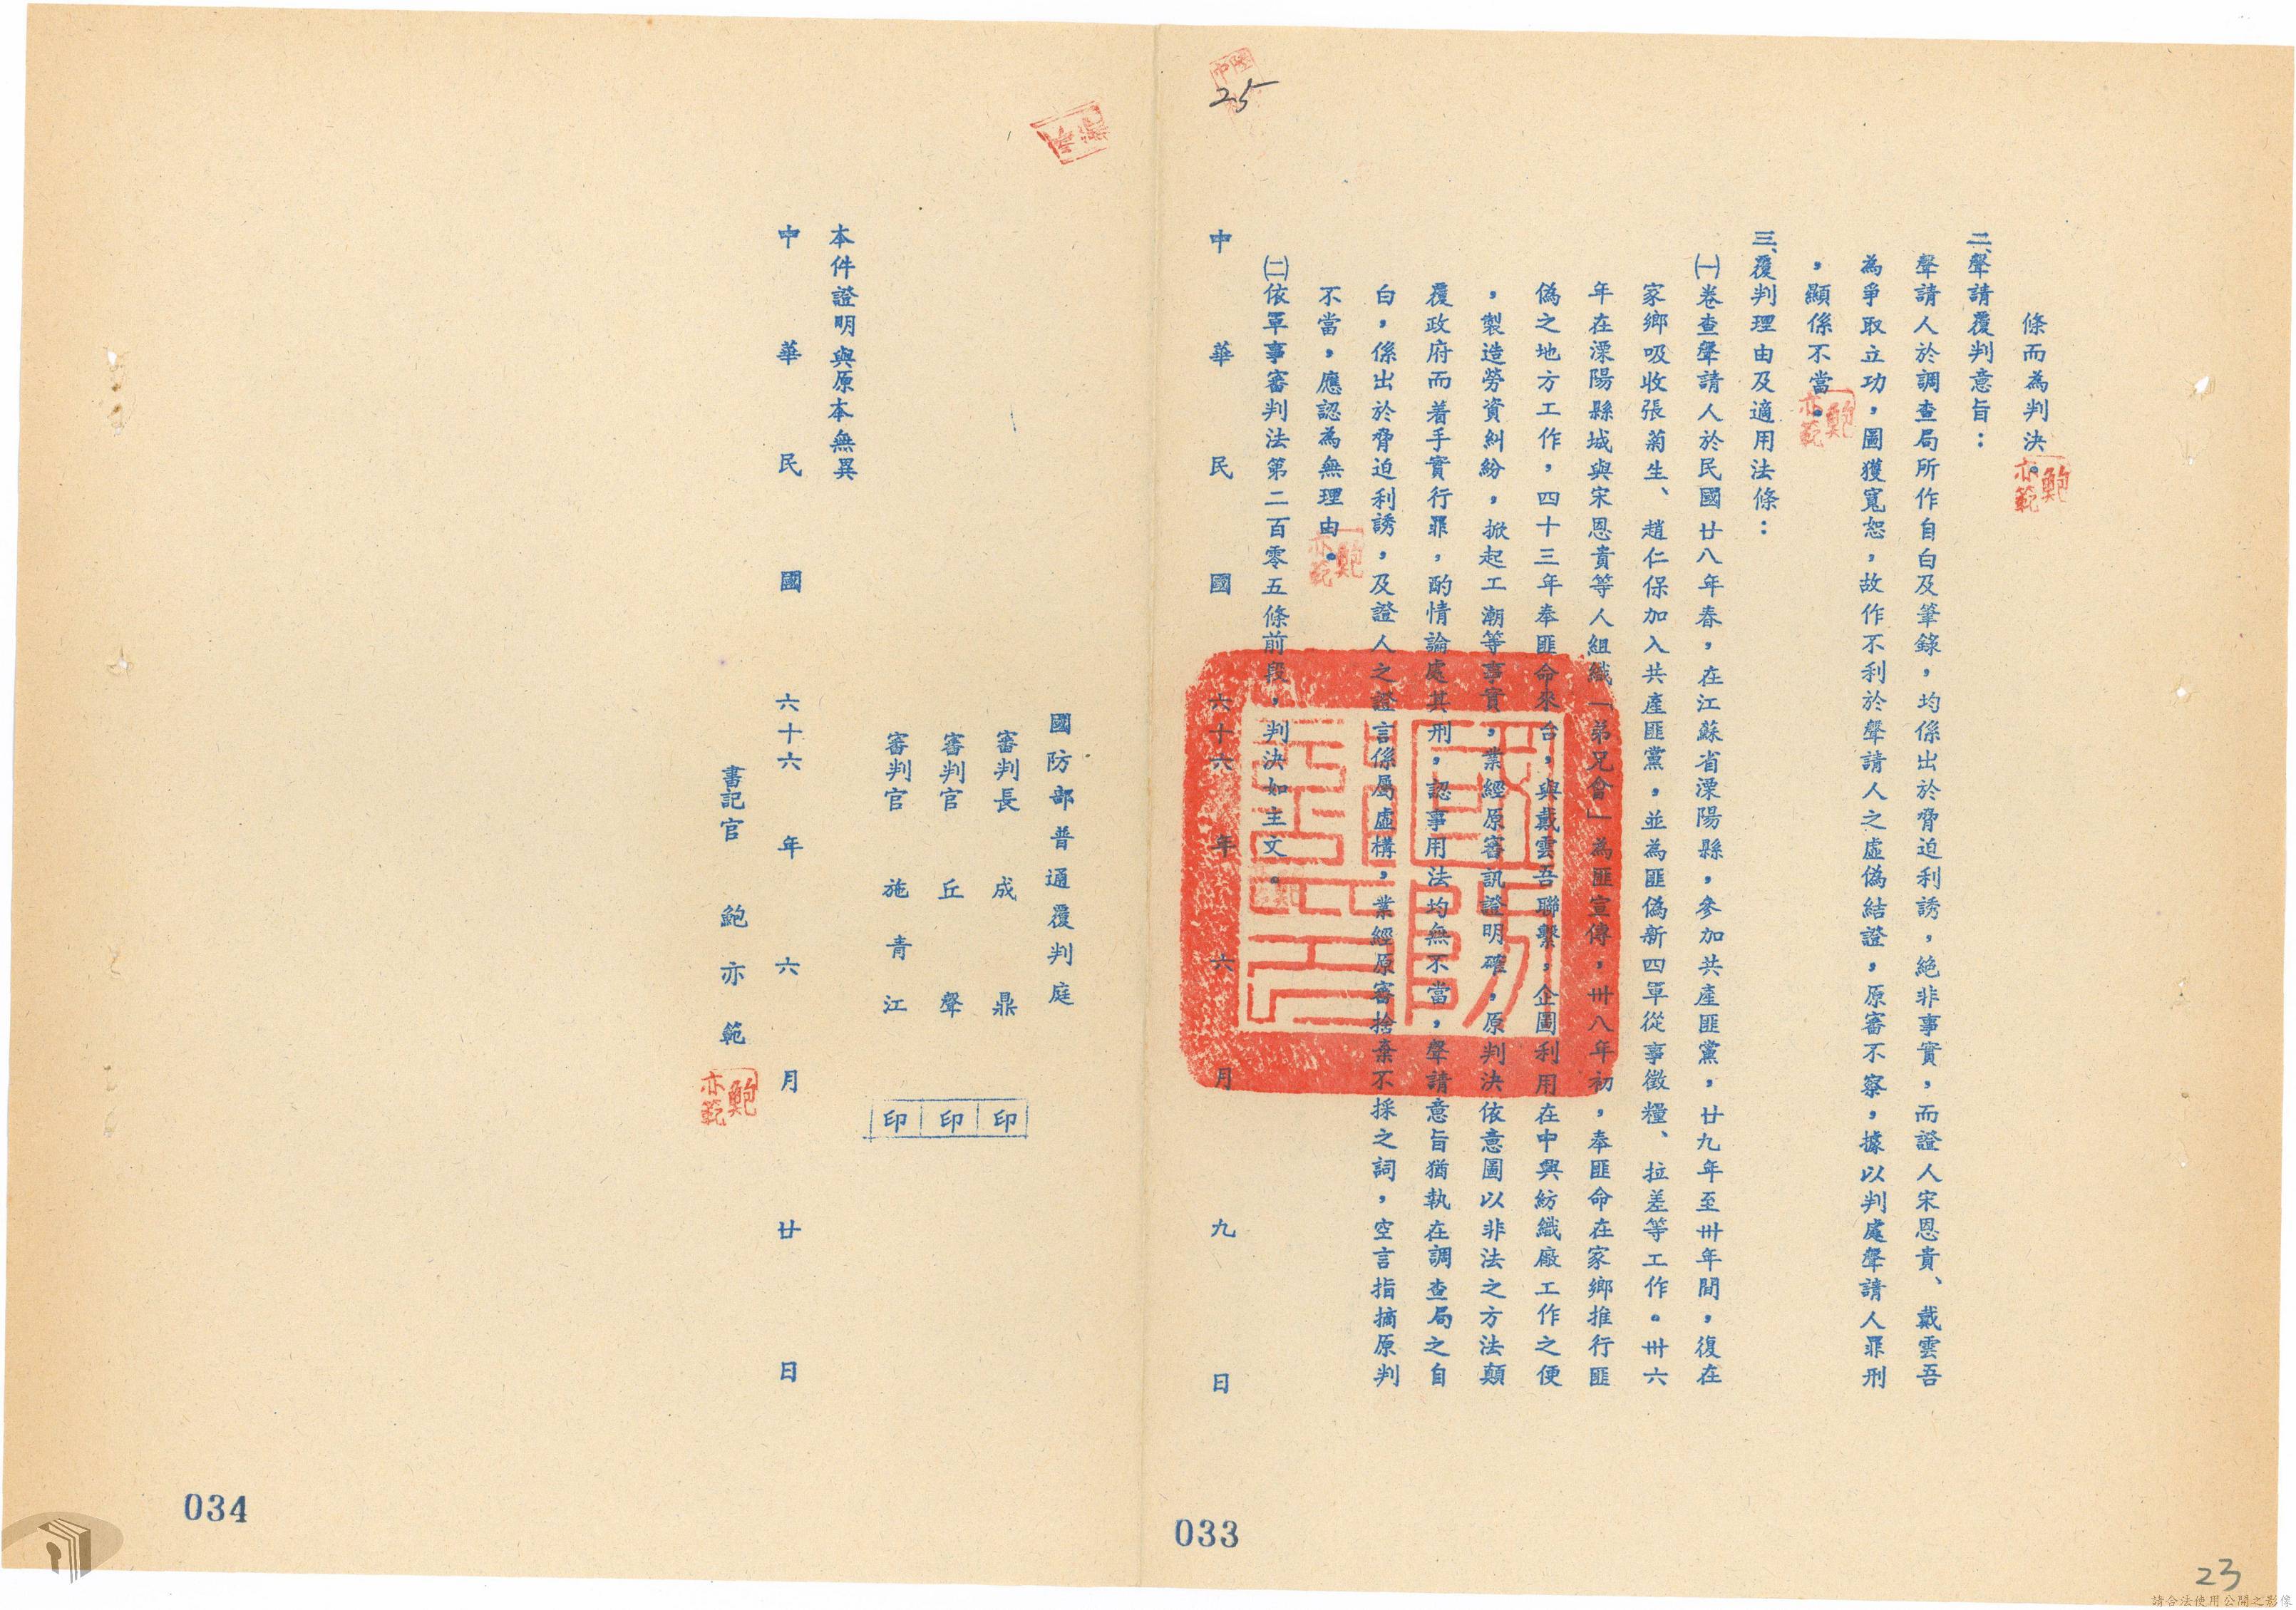 條而為判決。
二、聲請覆判意旨：
聲請人於調查局所作自白及筆錄，均係出於脅迫利誘，絕非事實，而證人宋恩貴、戴雲吾
為爭取立功，圖獲寬恕，故作不利於聲請人之虛偽結證，原審不察，據以判處聲請人罪刑
，顯係不當。
三、覆判理由及適用法條：
㈠卷查聲請人於民國廿八年春，在江蘇省溧陽縣，參加共產匪黨，廿九年至卅年間，復在
家鄉吸收張菊生、趙仁保加入共產匪黨，並為匪偽新四軍從事徵糧、拉差等工作。卅六
年在溧陽縣城與宋恩貴等人組織「弟兄會」為匪宣傳，卅八年初，奉匪命在家鄉推行匪
偽之地方工作，四十三年奉匪命來台，與戴雲吾聯繫，企圖利用在中興紡織廠工作之便
，製造勞資糾紛，掀起工潮等事實，業經原審訊證明確，原判決依意圖以非法之方法顛
覆政府而着手實行罪，酌情論處其刑，認事用法均無不當，聲請意旨猶執在調查局之自
白，係出於脅迫利誘，及證人之證言係屬虛構，業經原審捨棄不採之詞，空言指摘原判
不當，應認為無理由。
㈡依軍事審判法第二百零五條前段，判決如主文。
中華民國六十六年六月九日
25
033
23
國防部普通覆判庭
審判長 成鼎 印
審判官 丘聲 印
審判官 施青江 印
本件證明與原本無異
中華民國六十六年六月廿日
書記官 鮑亦範
鮑亦範
034
請合法使用公開之影像